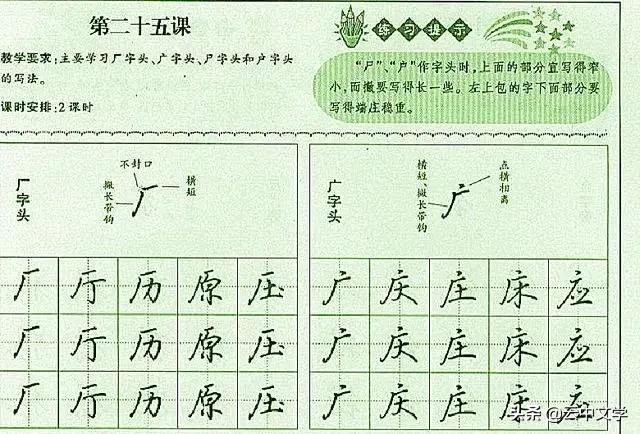 第二十五课
教学要求:主要学习厂字头、广字头、尸字头和户字头
的写法。
课时安排:2课时
练习提示
“尸”、“户”作字头时,上面的部分宜写得窄
小,而撇要写得长一些。左上包的字下面部分要
写得端庄稳重。
厂字头
不封口
横短
撇长带钩
广字头
横短、撇长带钩
点横相离
厂 厅 历 原 压
厂 厅 历 原 压
厂 厅 历 原 压
广 庆 庄 床 应
广 庆 庄 床 应
广 庆 庄 床 应
头条 @云中文学